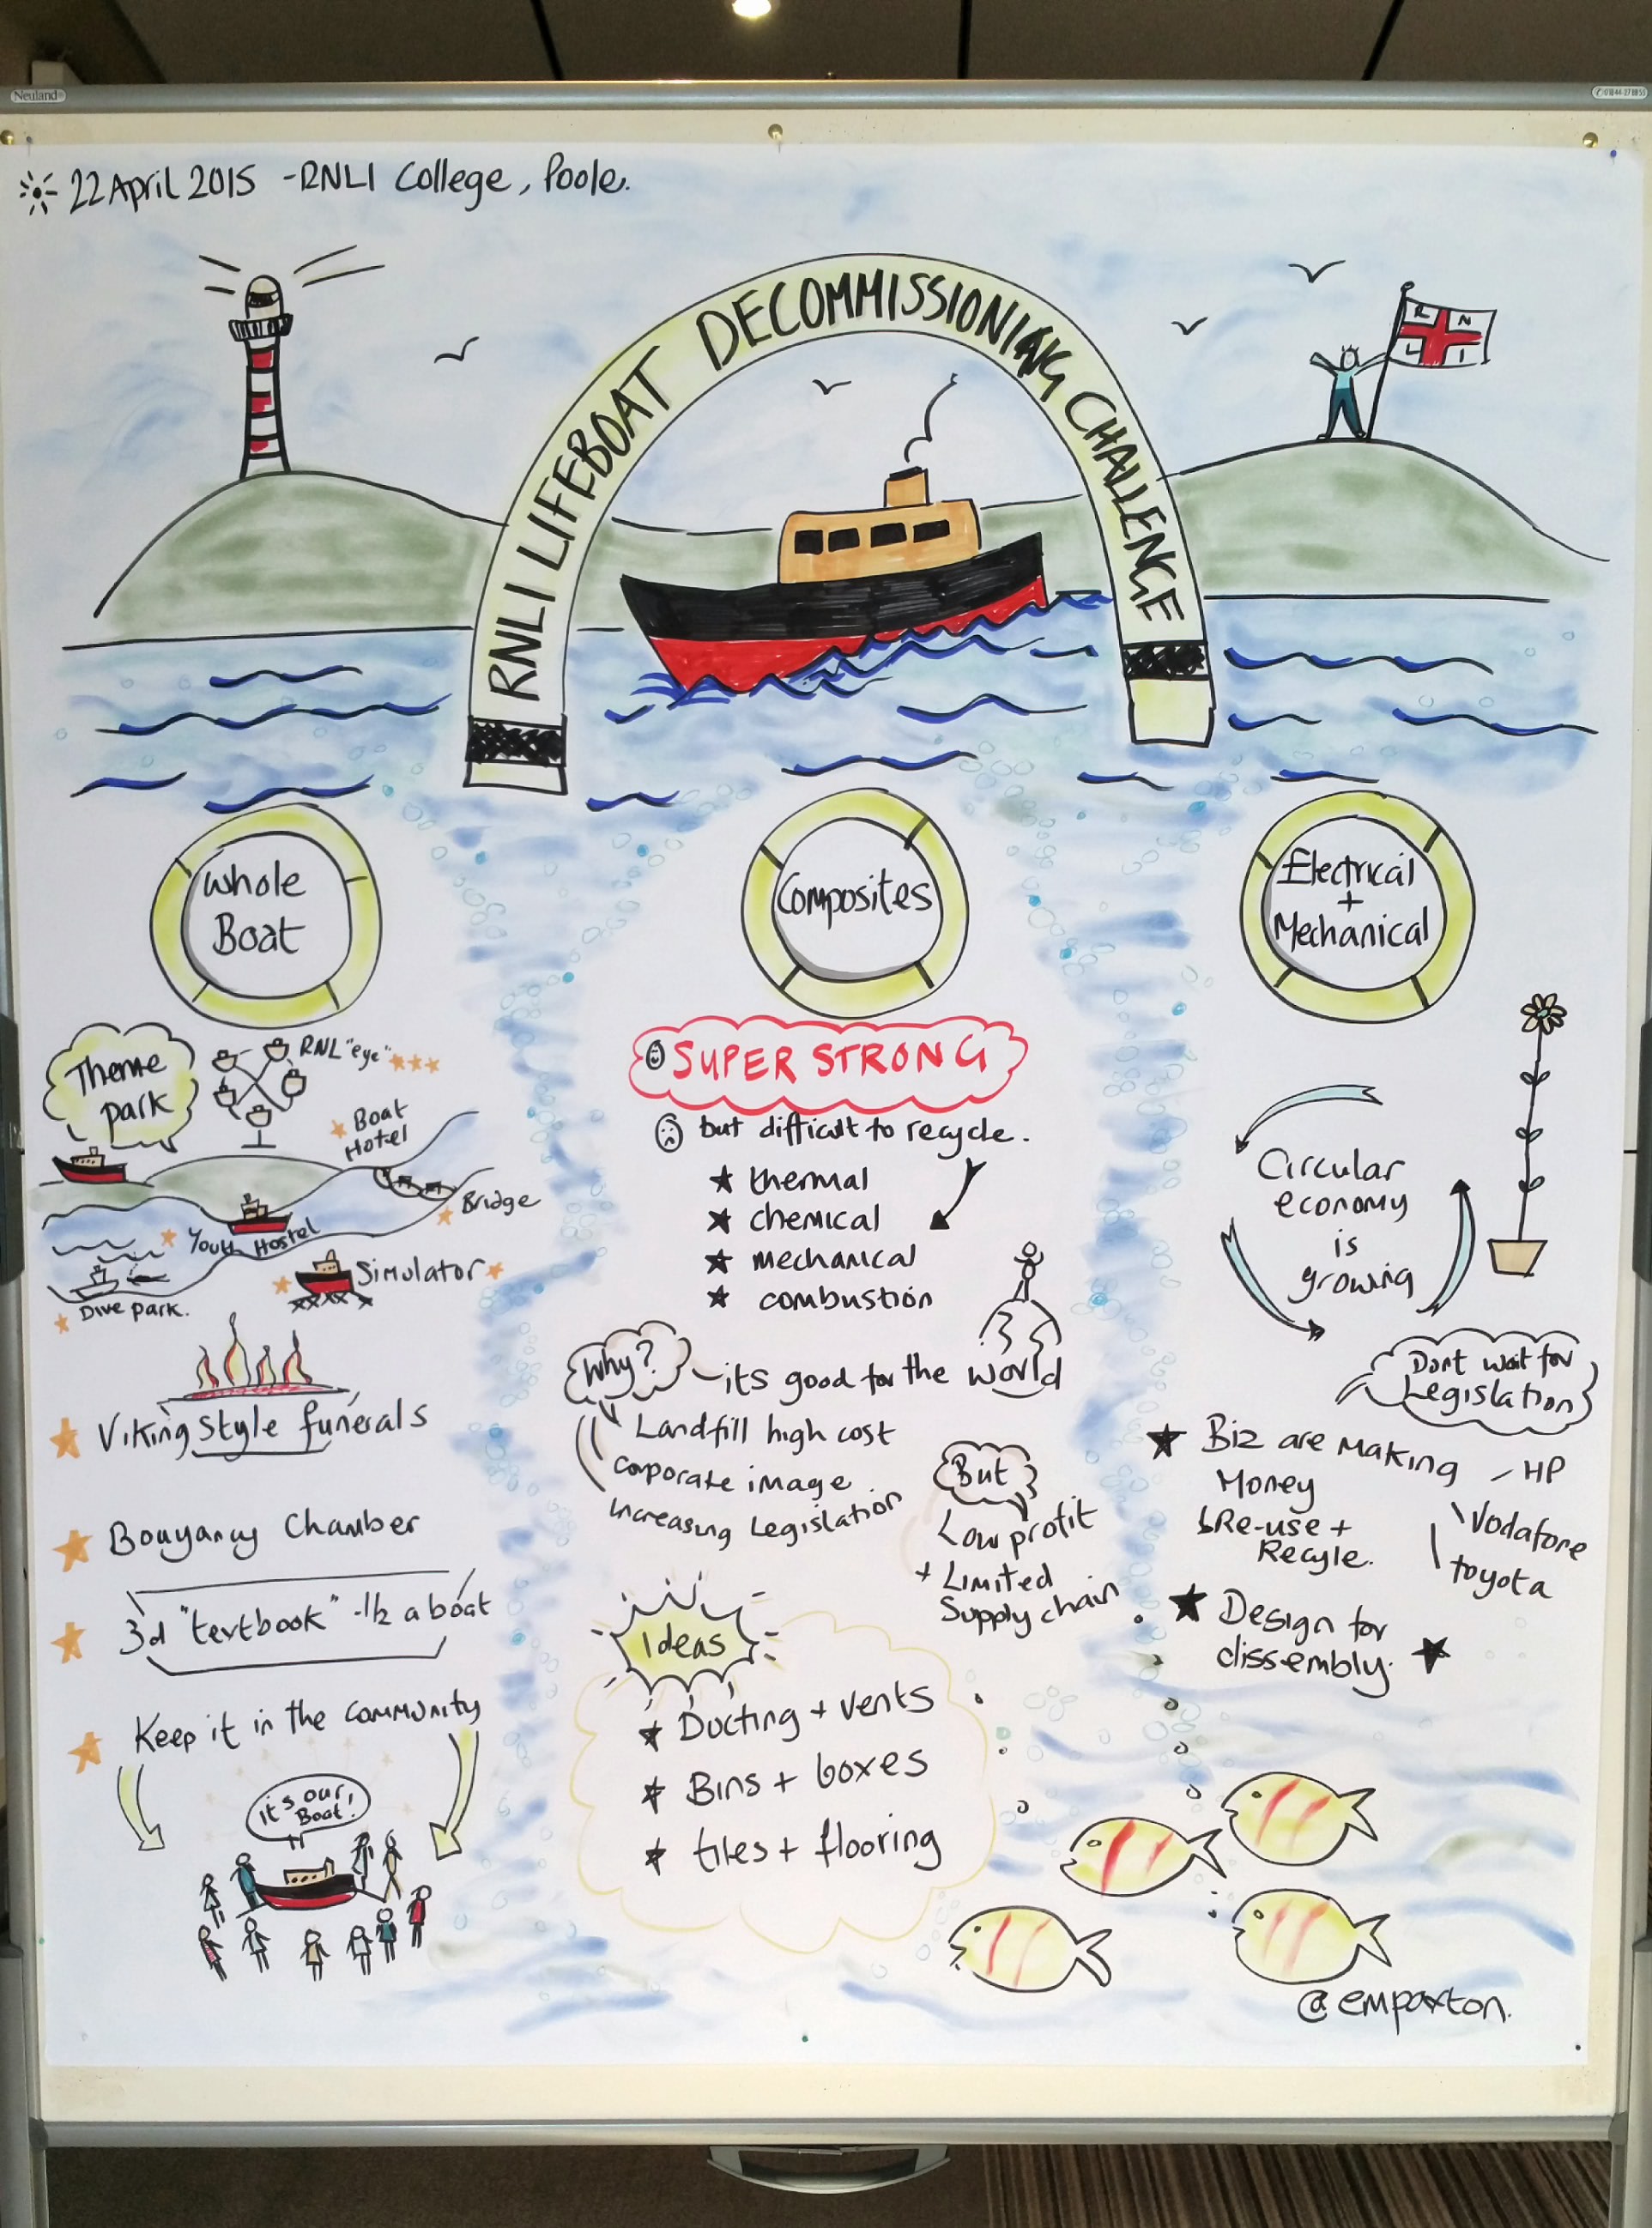 Neuland
22 April 2015 - RNLI College, Poole.
RNLI LIFEBOAT DECOMMISSIONING CHALLENGE
R N
L I
Whole
Boat
Theme
park
RNL "eye"
Boat
Hotel
Bridge
Youth Hostel
Simulator
Dive park.
Viking style funerals
Bouyancy Chamber
3d "textbook" - 1/2 a boat
Keep it in the community
It's our
Boat!
Composites
SUPER STRONG
but difficult to recycle.
thermal
chemical
mechanical
combustion
Why?
its good for the world
Landfill high cost
corporate image
increasing Legislation
But
Low profit
+ Limited
Supply chain
Ideas
Ducting + vents
Bins + boxes
tiles + flooring
Electrical
+
Mechanical
Circular
economy
is
growing
Dont wait for
Legislation
Biz are making
Money
Re-use +
Recyle.
HP
Vodafone
toyota
Design for
dissembly.
@empaxton.